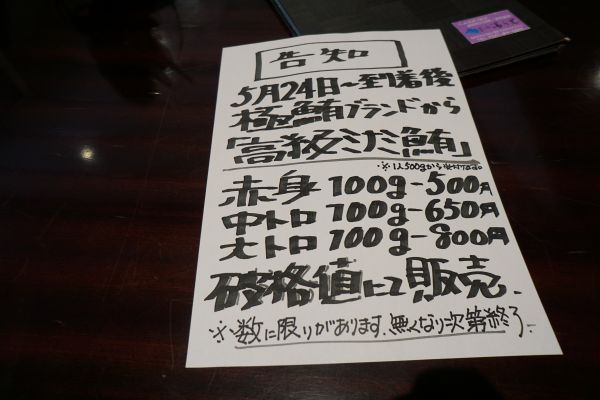 告知
5月24日〜到着後
極鮪ブランドから
「高級ミナミ鮪」
※1人500gから
赤身 100g-500円
中トロ 100g-650円
大トロ 100g-800円
破格値にて販売.
※数に限りがあります.無くなり次第終了.